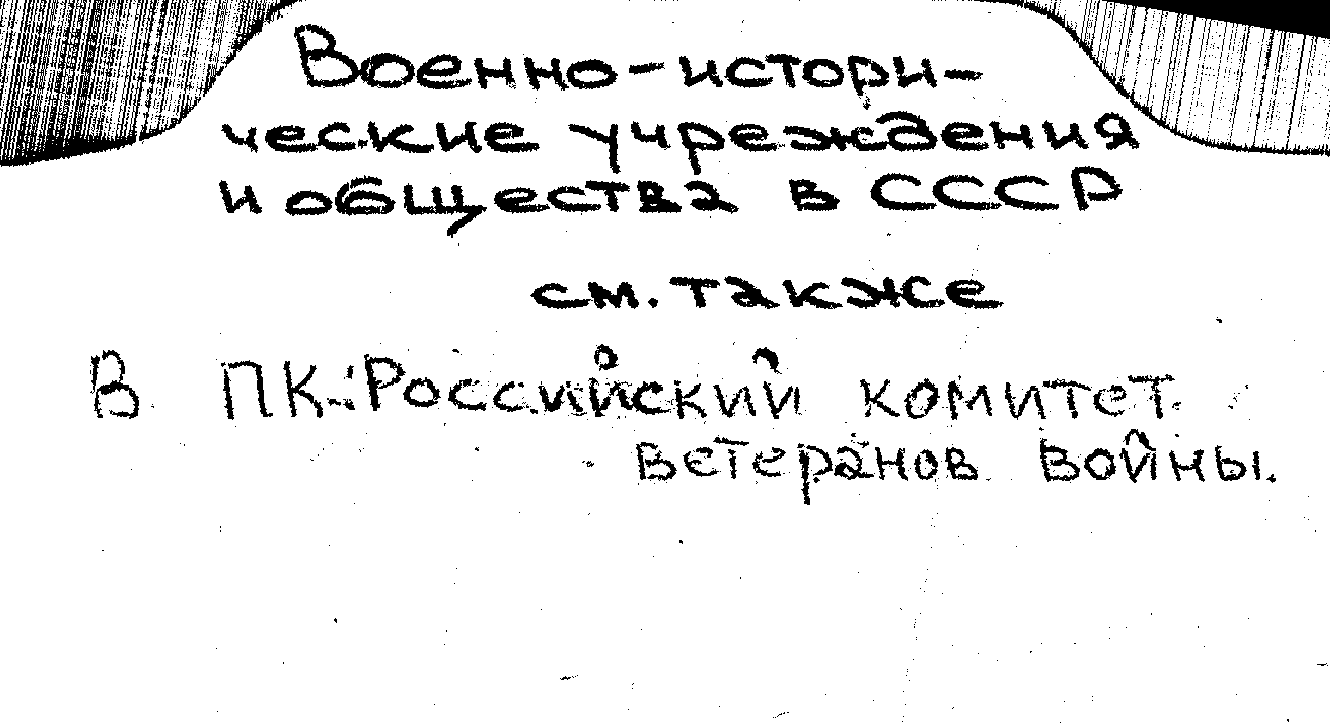 Военно-истори-
ческие учреждения
и общества в СССР
см. также
В ПК: Российский комитет
ветеранов войны.